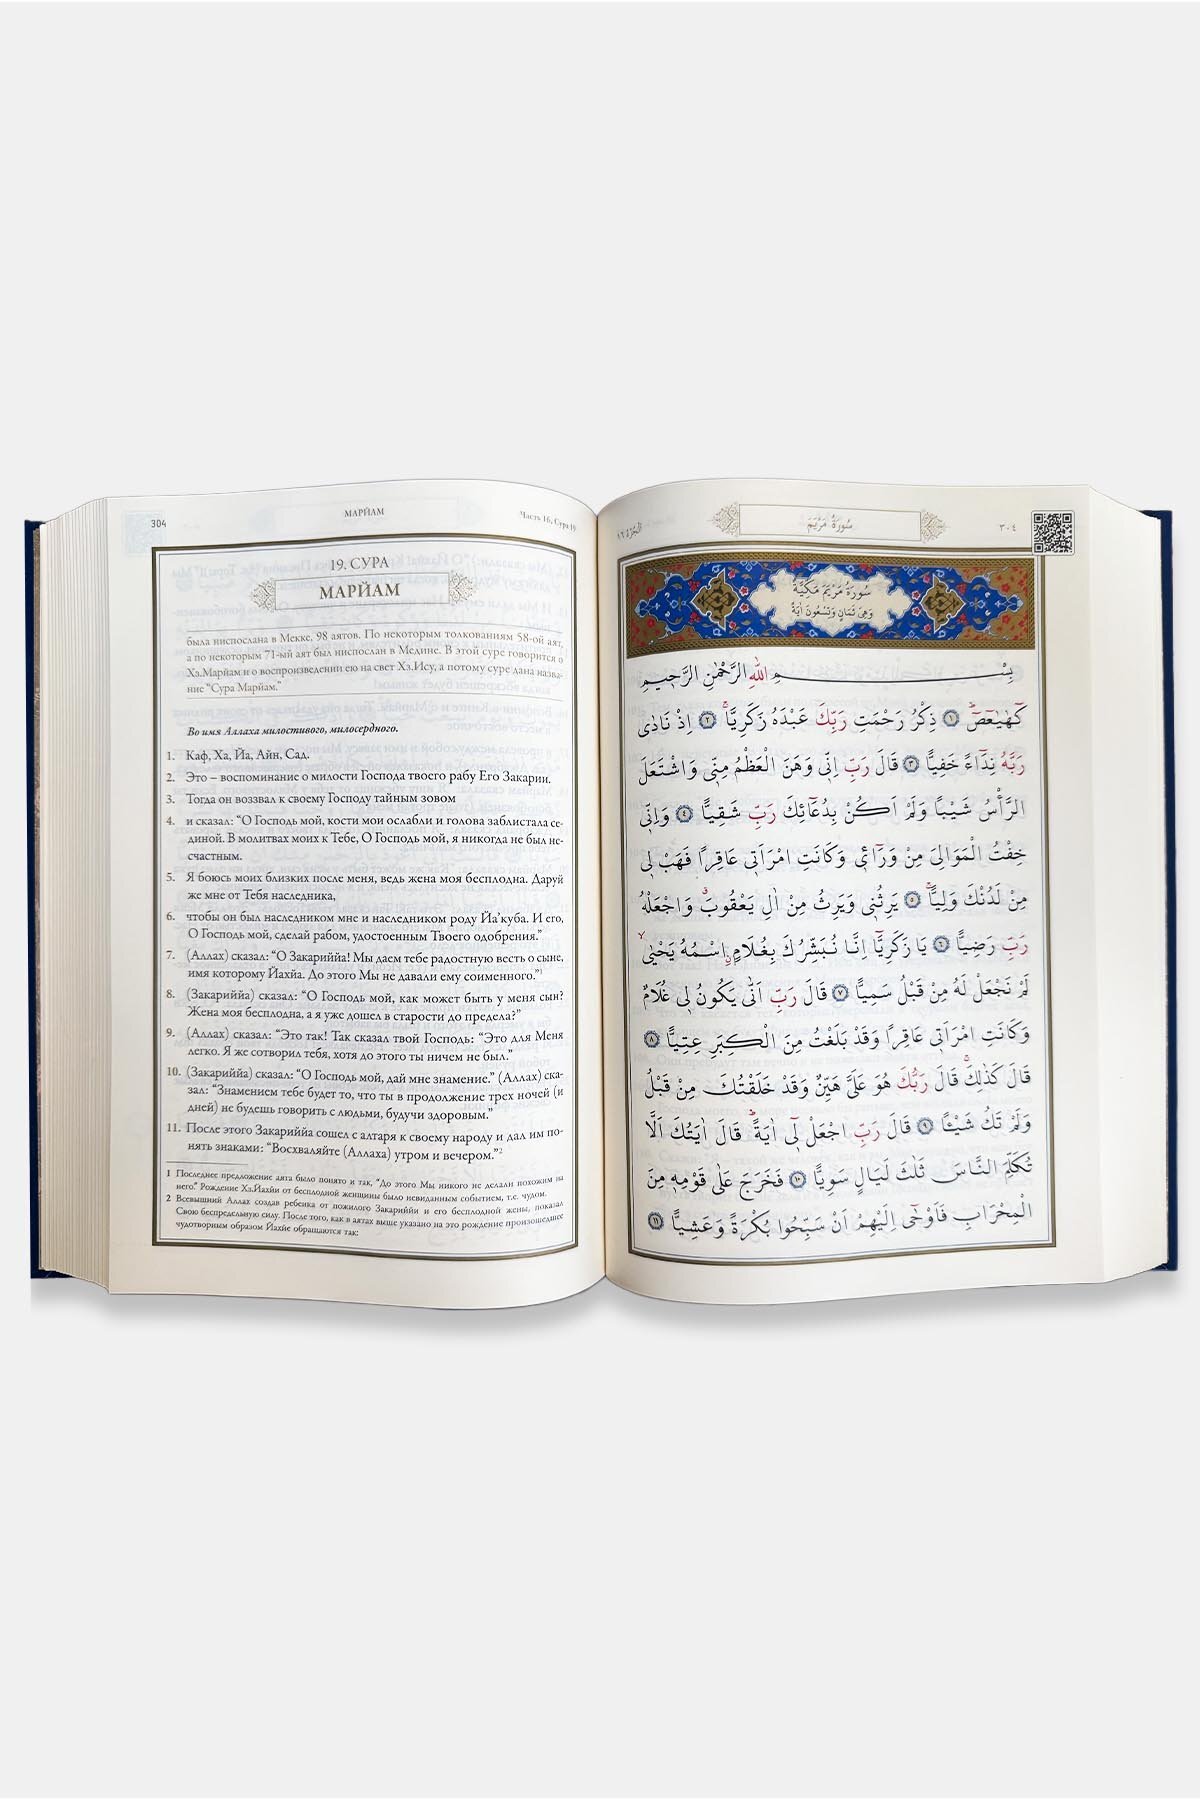 304
МАРЙАМ
Часть 16, Сура 19
19. СУРА
МАРЙАМ
была ниспослана в Мекке, 98 аятов. По некоторым толкованиям 58-ой аят,
а по некоторым 71-ый аят был ниспослан в Медине. В этой суре говорится о
Хз.Марйам и о воспроизведении ею на свет Хз.Ису, а потому суре дана назва-
ние "Сура Марйам."
Во имя Аллаха милостивого, милосердного.
1. Каф, Ха, Йа, Айн, Сад.
2. Это – воспоминание о милости Господа твоего рабу Его Закарии.
3. Тогда он воззвал к своему Господу тайным зовом
4. и сказал: "О Господь мой, кости мои ослабли и голова заблистала се-
диной. В молитвах моих к Тебе, О Господь мой, я никогда не был не-
счастным.
5. Я боюсь моих близких после меня, ведь жена моя бесплодна. Даруй
же мне от Тебя наследника,
6. чтобы он был наследником мне и наследником роду Йа'куба. И его,
О Господь мой, сделай рабом, удостоенным Твоего одобрения."
7. (Аллах) сказал: "О Закариййа! Мы даем тебе радостную весть о сыне,
имя которому Йахйа. До этого Мы не давали ему соименного."1
8. (Закариййа) сказал: "О Господь мой, как может быть у меня сын?
Жена моя бесплодна, а я уже дошел в старости до предела?"
9. (Аллах) сказал: "Это так! Так сказал твой Господь: "Это для Меня
легко. Я же сотворил тебя, хотя до этого ты ничем не был."
10. (Закариййа) сказал: "О Господь мой, дай мне знамение." (Аллах) ска-
зал: "Знамением тебе будет то, что ты в продолжение трех ночей (и
дней) не будешь говорить с людьми, будучи здоровым."
11. После этого Закариййа сошел с алтаря к своему народу и дал им по-
нять знаками: "Восхваляйте (Аллаха) утром и вечером."2
1 Последнее предложение аята было понято и так, "До этого Мы никого не делали похожим на
него." Рождение Хз.Йахйи от бесплодной женщины было невиданным событием, т.е. чудом.
2 Всевышний Аллах создав ребенка от пожилого Закариййи и его бесплодной жены, показал
Свою беспредельную силу. После того, как в аятах выше указано на это рождение произошедшее
чудотворным образом Йахйе обращаются так:
٣٠٤
سُورَةُ مَرْيَمَ
اَلْجُزْءُ ١٦
سُورَةُ مَرْيَمَ مَكِّيَّةٌ
وَهِىَ ثَمَانٍ وَتِسْعُونَ اٰيَةً
بِسْمِ اللّٰهِ الرَّحْمٰنِ الرَّحِيمِ
كٓهٰيٰعٓصٓ ﴿١﴾ ذِكْرُ رَحْمَتِ رَبِّكَ عَبْدَهُ زَكَرِيَّا ﴿٢﴾ اِذْ نَادٰى
رَبَّهُ نِدَٓاءً خَفِيًّا ﴿٣﴾ قَالَ رَبِّ اِنّ۪ى وَهَنَ الْعَظْمُ مِنّ۪ى وَاشْتَعَلَ
الرَّأْسُ شَيْبًا وَلَمْ اَكُنْ بِدُعَٓائِكَ رَبِّ شَقِيًّا ﴿٤﴾ وَاِنّ۪ى
خِفْتُ الْمَوَالِىَ مِنْ وَرَٓاء۪ى وَكَانَتِ امْرَاَت۪ى عَاقِرًا فَهَبْ ل۪ى
مِنْ لَدُنْكَ وَلِيًّا ﴿٥﴾ يَرِثُن۪ى وَيَرِثُ مِنْ اٰلِ يَعْقُوبَ وَاجْعَلْهُ
رَبِّ رَضِيًّا ﴿٦﴾ يَا زَكَرِيَّٓا اِنَّا نُبَشِّرُكَ بِغُلَامٍ اسْمُهُ يَحْيٰى
لَمْ نَجْعَلْ لَهُ مِنْ قَبْلُ سَمِيًّا ﴿٧﴾ قَالَ رَبِّ اَنّٰى يَكُونُ ل۪ى غُلَامٌ
وَكَانَتِ امْرَاَت۪ى عَاقِرًا وَقَدْ بَلَغْتُ مِنَ الْكِبَرِ عِتِيًّا ﴿٨﴾
قَالَ كَذٰلِكَ قَالَ رَبُّكَ هُوَ عَلَىَّ هَيِّنٌ وَقَدْ خَلَقْتُكَ مِنْ قَبْلُ
وَلَمْ تَكُ شَيْـًٔا ﴿٩﴾ قَالَ رَبِّ اجْعَلْ ل۪ٓى اٰيَةً قَالَ اٰيَتُكَ اَلَّا
تُكَلِّمَ النَّاسَ ثَلٰثَ لَيَالٍ سَوِيًّا ﴿١٠﴾ فَخَرَجَ عَلٰى قَوْمِه۪ مِنَ
الْمِحْرَابِ فَاَوْحٰٓى اِلَيْهِمْ اَنْ سَبِّحُوا بُكْرَةً وَعَشِيًّا ﴿١١﴾